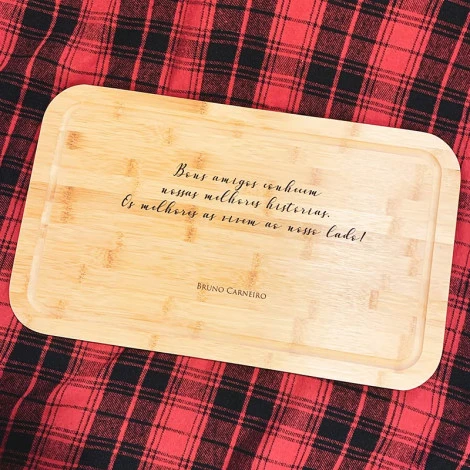 Bons amigos conhecem
nossas melhores histórias.
Os melhores as vivem ao nosso lado!
BRUNO CARNEIRO